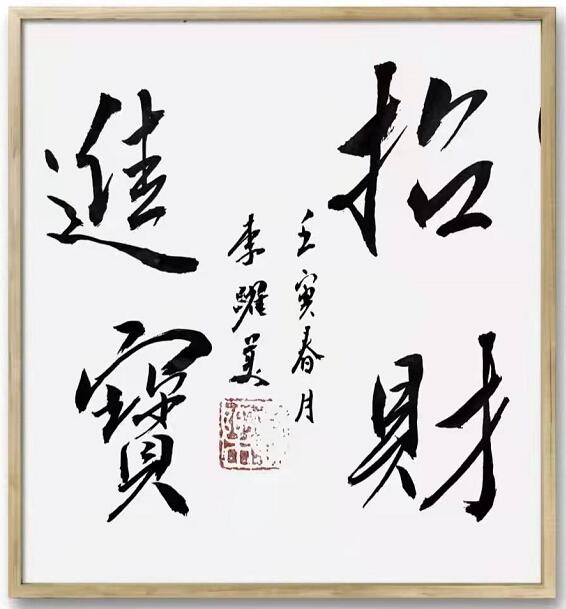 招財
進寶
壬寅春月
李躍美